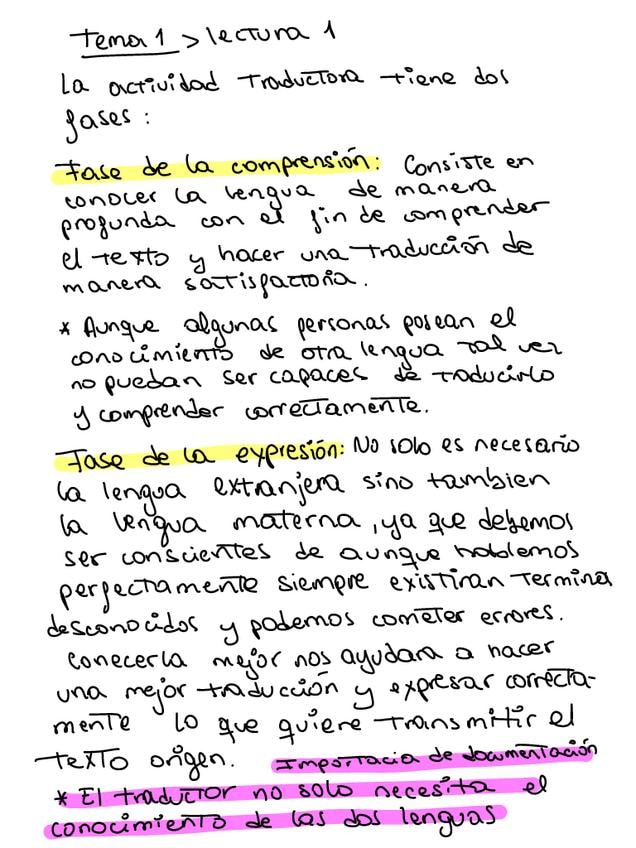 Tema 1 > lectura 1
La actividad traductora tiene dos
fases:
Fase de la comprensión: Consiste en
conocer la lengua de manera
profunda con el fin de comprender
el texto y hacer una traducción de
manera satisfactoria.
* Aunque algunas personas posean el
conocimiento de otra lengua tal vez
no puedan ser capaces de traducirlo
y comprender correctamente.
Fase de la expresión: No solo es necesario
la lengua extranjera sino tambien
la lengua materna, ya que debemos
ser conscientes de aunque hablemos
perfectamente siempre existiran termina
desconocidos y podemos cometer errores.
Conecerla mejor nos ayudara a hacer
una mejor traducción y expresar correcta-
mente lo que quiere transmitir el
texto origen. Importacia de documentación
* El traductor no solo necesita el
conocimiento de las dos lenguas